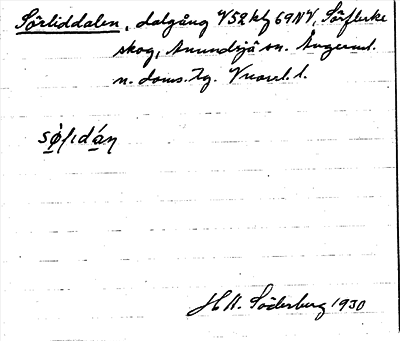 Sörliddalen, dalgång V52 kf 69NV, Sörflärke
skog, Anundsjö sn. Ångerml.
n. doms. tg.
sø̀lidáṇ
H.W. Söderberg 1930